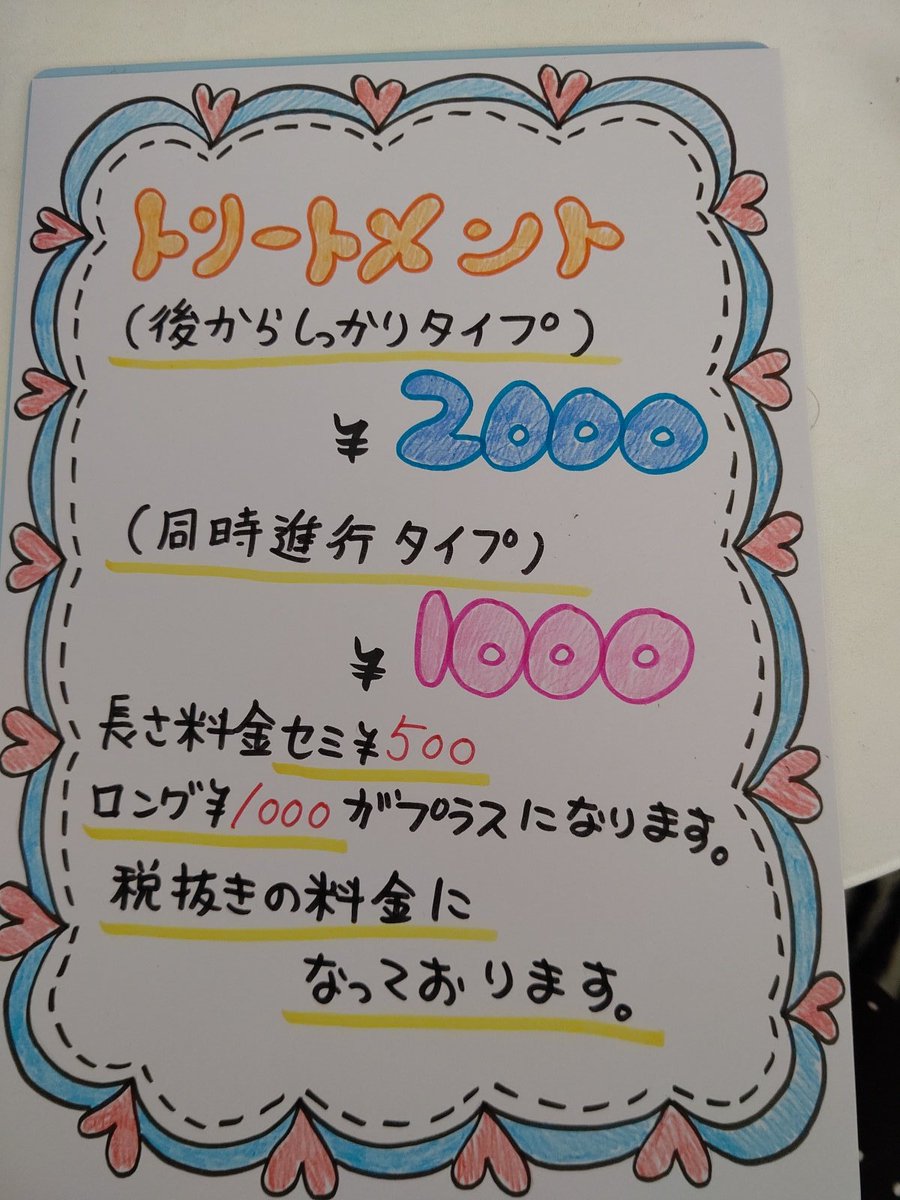 トリートメント
(後からしっかりタイプ)
¥2000
(同時進行タイプ)
¥1000
長さ料金セミ¥500
ロング¥1000がプラスになります。
税抜きの料金に
なっております。